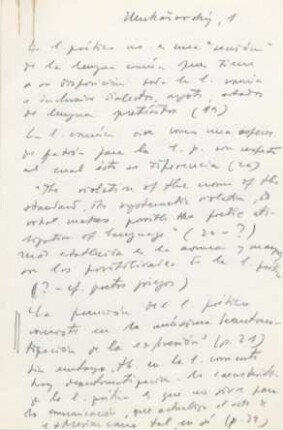 Mukařovský, 1
La l. poética no es una "sección"
de la lengua común, pues tiene
a su disposición toda la l. común
e inclusive dialectos, argots, estados
de lengua pretéritos (19)
La l. común sirve como una especie
de patrón para la l. p. con respecto
al cual ésta se diferencia (20)
"The violation of the norm of the
standard, its systematic violation, is
what makes possible the poetic uti-
lization of language" (20-?)
más establecida es la norma y mayor
son las posibilidades de la l. poética
(? - cf. poetas griegos)
"La función del l. poético
consiste en la máxima desautoma-
tización de la expresión" (p. 21)
Sin embargo, tb. en la l. corriente
hay desautomatización. Lo
de la l. poética es que no sirve para
la comunicación,
(p. 22)